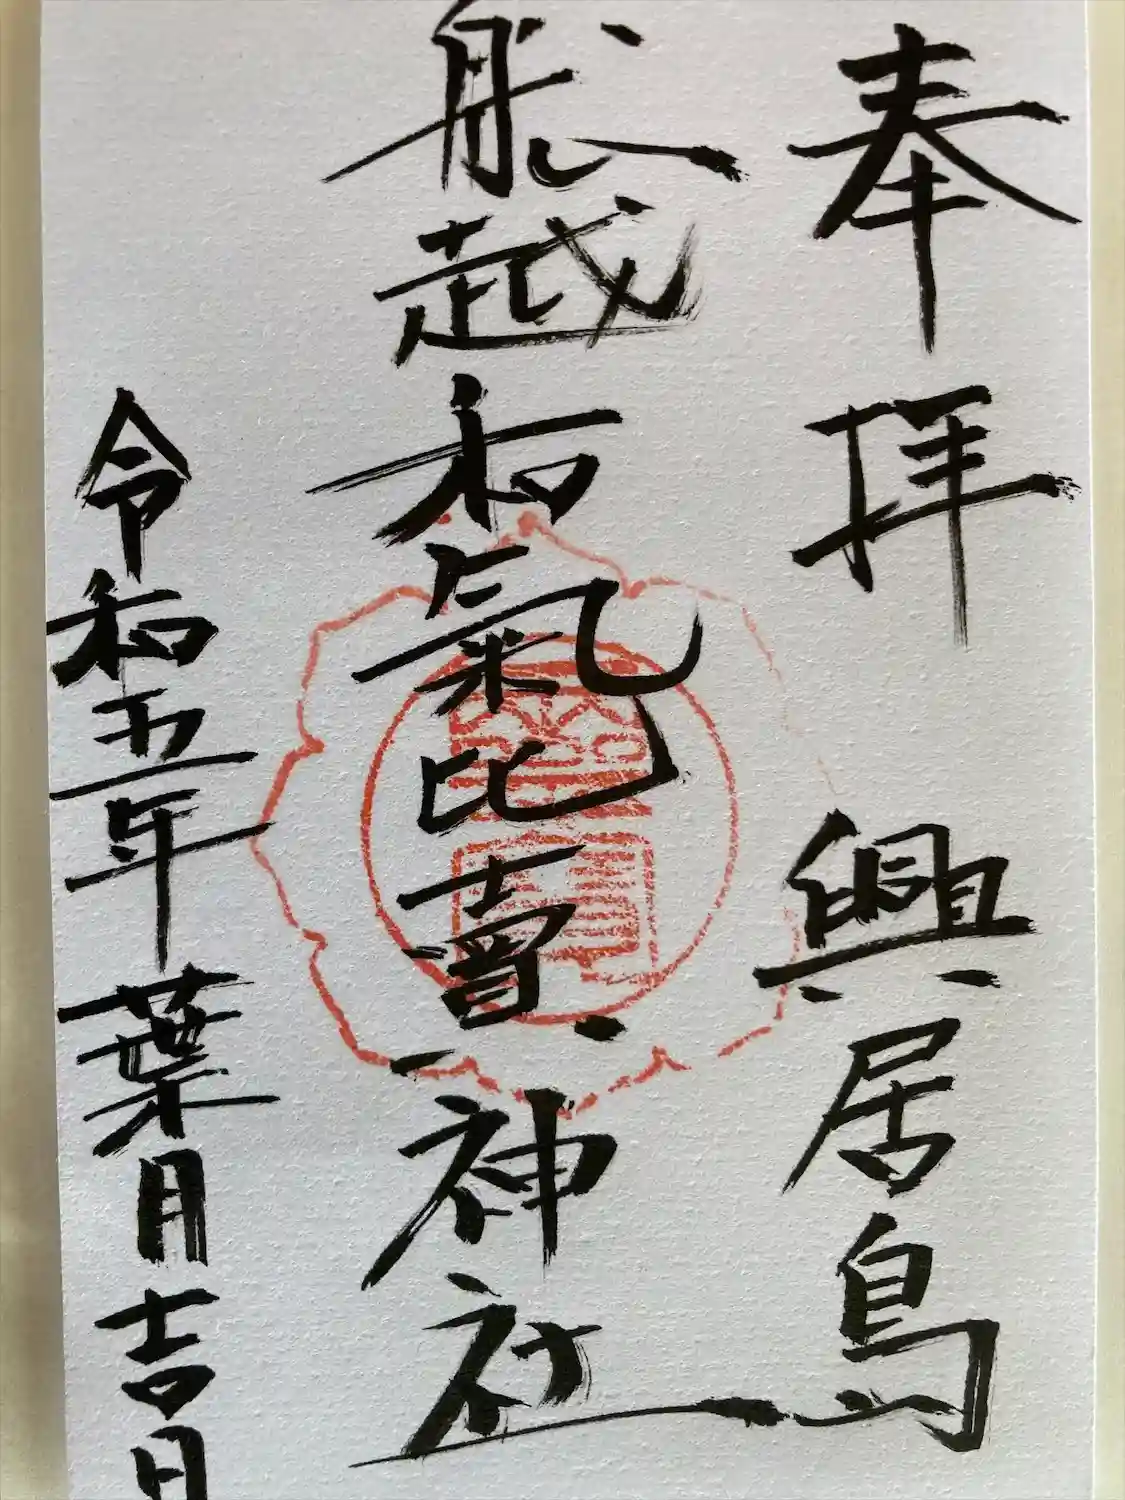 奉拝 興居島
船越和氣比賣神社
令和五年葉月吉日